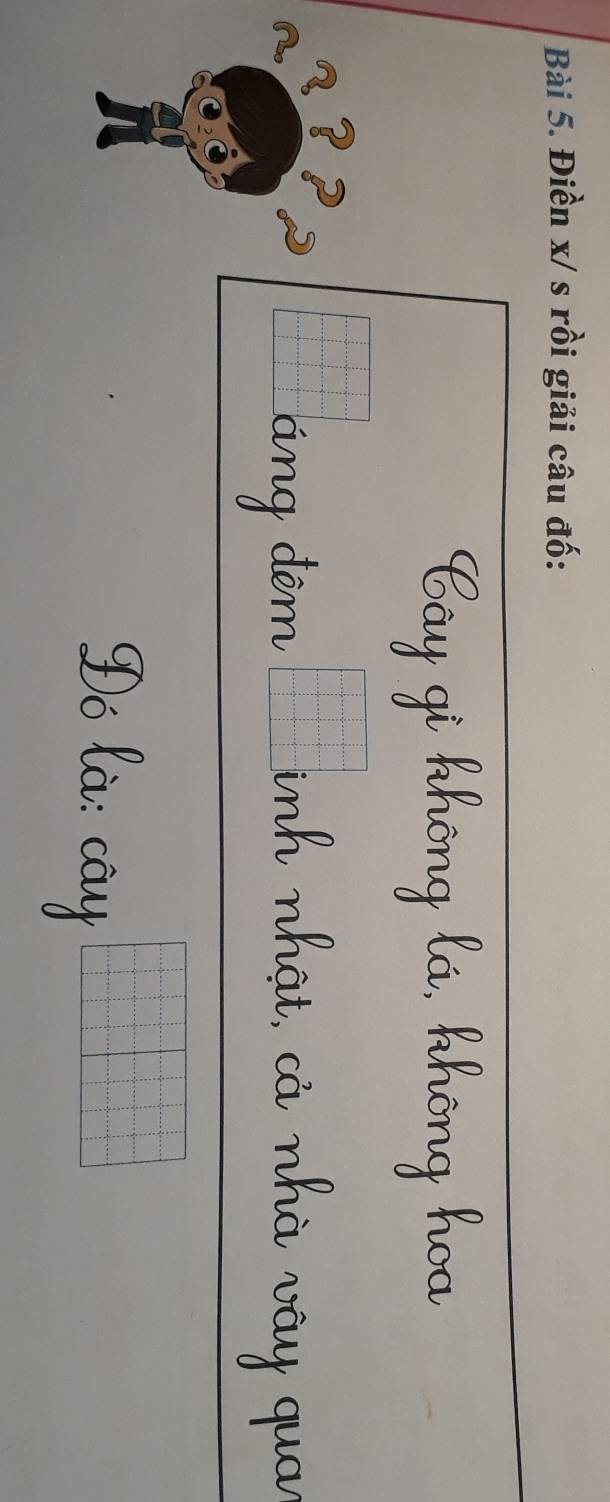 Bài 5. Điền x/ s rồi giải câu đố:
? ? ? ? ?
Cây gì không lá, không hoa
áng đêm inh nhật, cả nhà vây
Đó là: cây